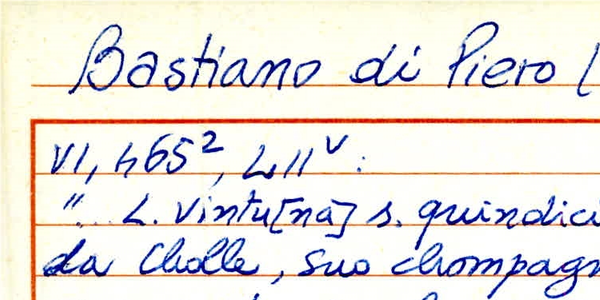 Bastiano di Piero (
VI, 465², L 11ᵛ:
"... L. vintu[na] s. quindici
da Cholle, suo chompagn